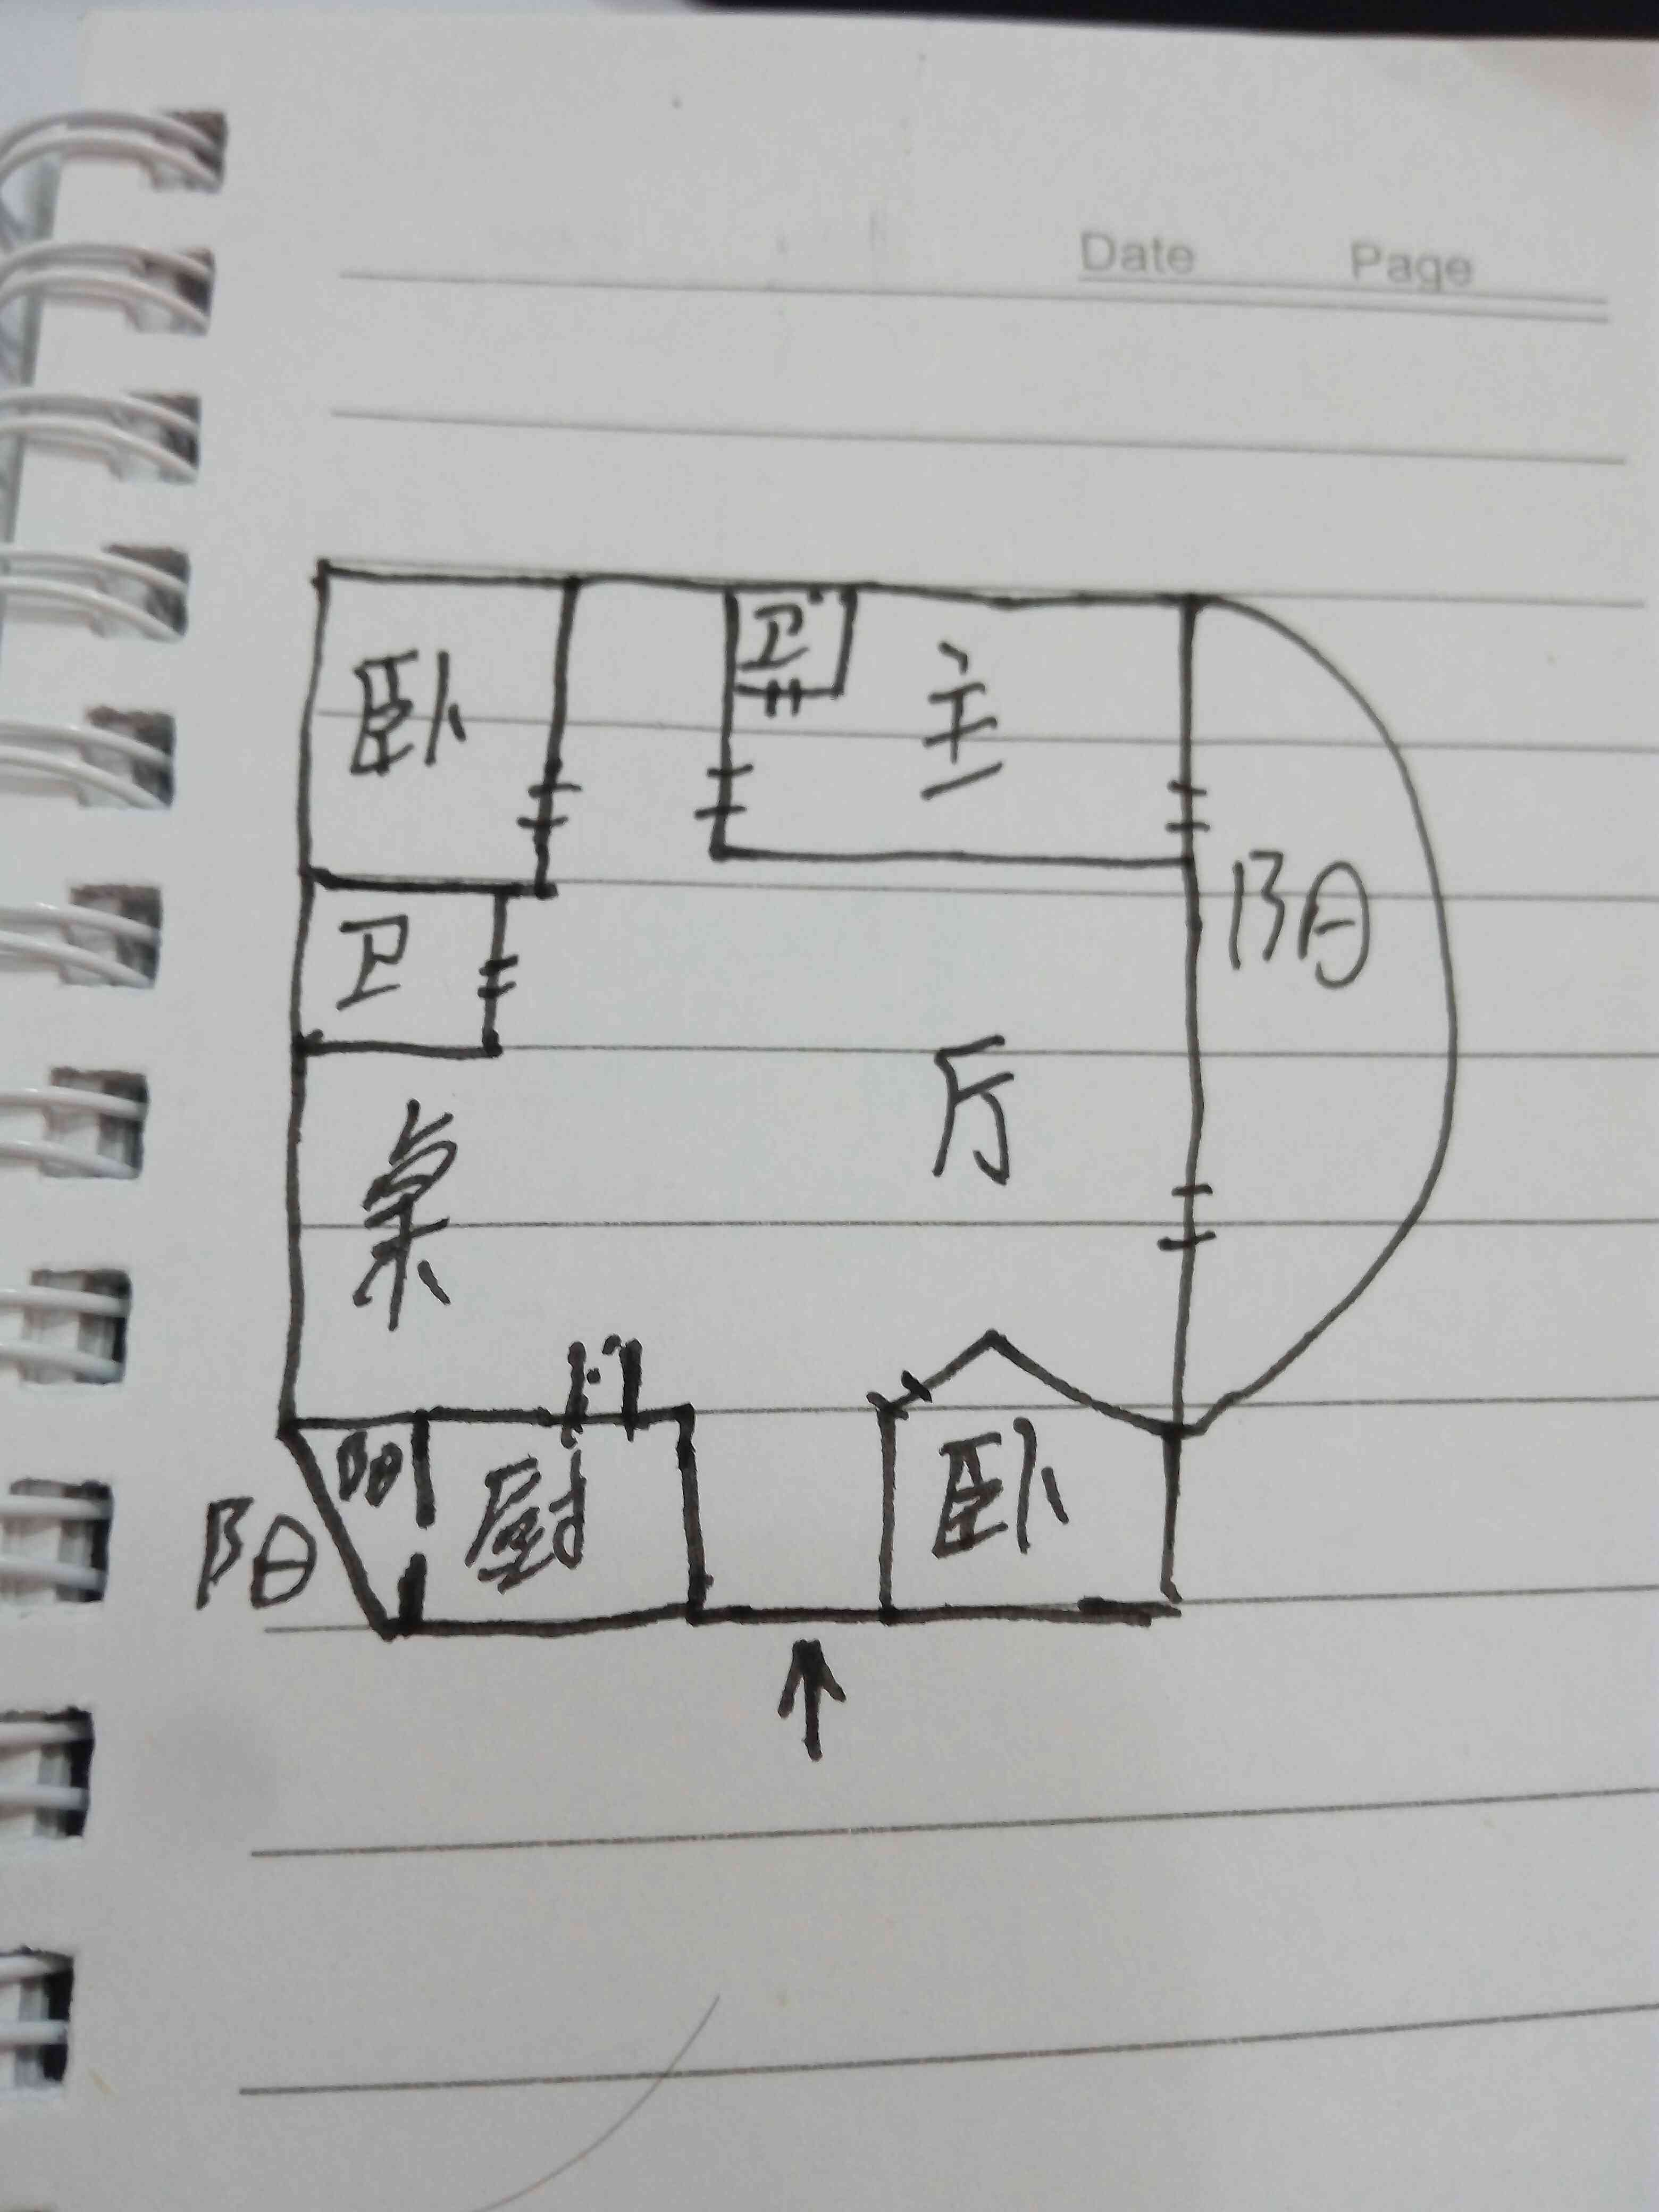 Date Page
卧 卫 主
卫 阳
厅
桌
阳 厨 卧
阳